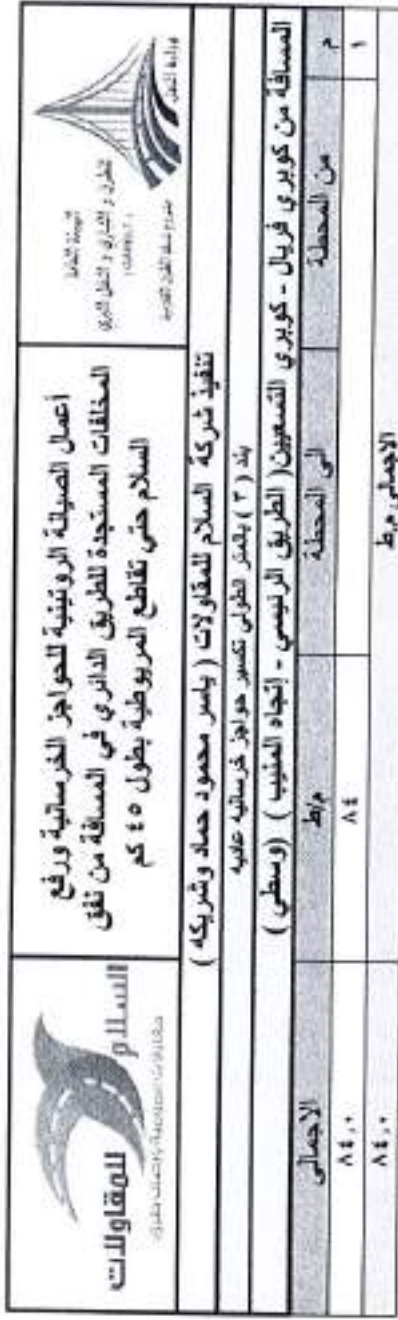 وزارة النقل
الهيئة العامة
للطرق و الكباري و النقل البري
(GARBLT)
أعمال الصيانة الروتينية للحواجز الخرسانية ورفع
المخلفات المستجدة للطريق الدائري في المسافة من نفق
السلام حتى تقاطع المريوطية بطول ٤٥ كم
السلام
للمقاولات
تنفيذ شركة السلام للمقاولات ( ياسر محمود حماد وشريكه )
بند ( ٣ ) بالمتر الطولي تكسير حواجز خرسانيه عاديه
المسافة من كوبري فريال - كوبري التسعين( الطريق الرئيسي - إتجاه المنيب ) (وسطي )
م من المحطة الى المحطة م/ط الاجمالى
١ ٨٤ ٨٤,٠
الاجمالى م.ط ٨٤,٠